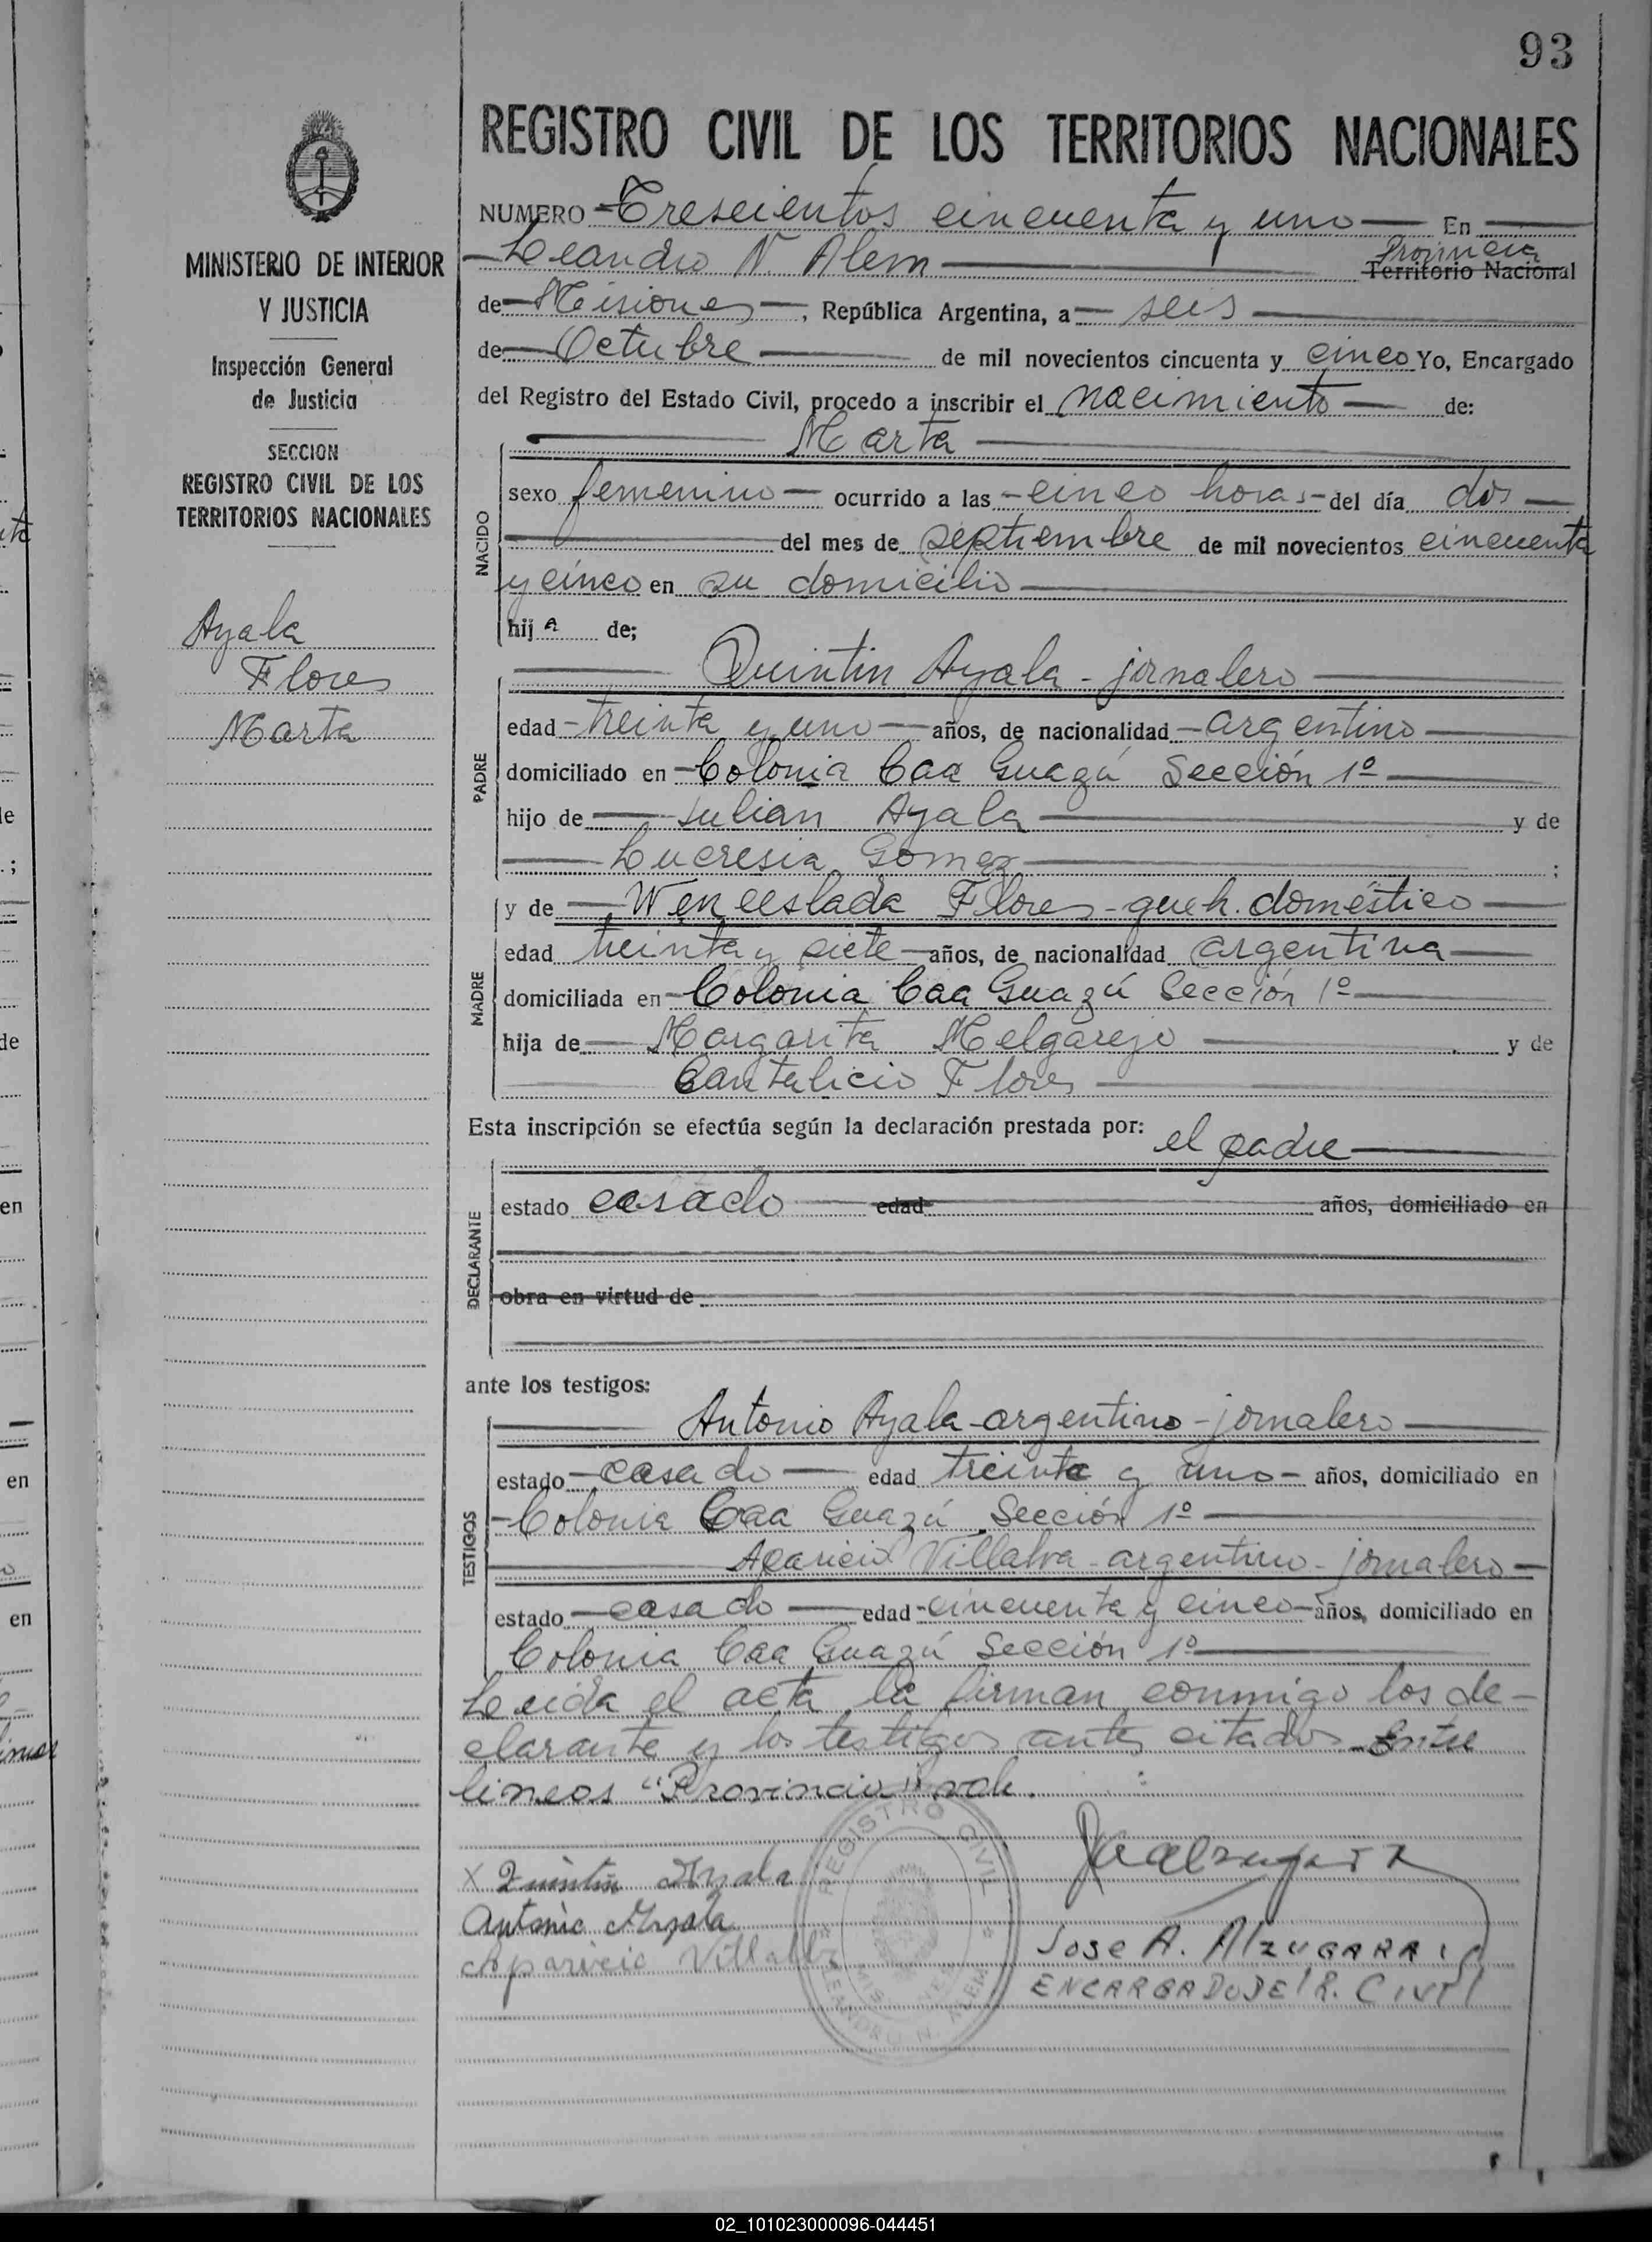 93
REGISTRO CIVIL DE LOS TERRITORIOS NACIONALES
MINISTERIO DE INTERIOR
Y JUSTICIA
Inspección General
de Justicia
SECCION
REGISTRO CIVIL DE LOS
TERRITORIOS NACIONALES
Ayala
Flores
Marta
NUMERO Tresecientos cincuenta y uno En
Leandro N. Alem Provincia
Territorio Nacional
de Misiones, República Argentina, a seis
de Octubre de mil novecientos cincuenta y cinco Yo, Encargado
del Registro del Estado Civil, procedo a inscribir el nacimiento de:
Marta
NACIDO
sexo femenino ocurrido a las cinco horas del día dos
del mes de septiembre de mil novecientos cincuenta
y cinco en su domicilio
hij a de;
PADRE
Quintin Ayala - jornalero
edad treinta y uno años, de nacionalidad argentino
domiciliado en Colonia Caa Guazú Sección 1º
hijo de Julian Ayala y de
Lucresia Gomez ;
y de Wenceslada Flores - queh. doméstico
MADRE
edad treinta y siete años, de nacionalidad argentina
domiciliada en Colonia Caa Guazú Sección 1º
hija de Margarita Melgarejo y de
Cantalicio Flores
Esta inscripción se efectúa según la declaración prestada por: el padre
DECLARANTE
estado casado edad años, domiciliado en
obra en virtud de
ante los testigos:
TESTIGOS
Antonio Ayala - argentino - jornalero
estado casado edad treinta y uno años, domiciliado en
Colonia Caa Guazú Sección 1º
Aparicio Villalva - argentino - jornalero
estado casado edad cincuenta y cinco años, domiciliado en
Colonia Caa Guazú Sección 1º
Leida el acta la firman conmigo los de-
clarante y los testigos antes citados Entre
lineas "Provincia" vale.
X Quintin Ayala
Antonio Ayala
Aparicio Villalba
REGISTRO CIVIL
MISIONES
LEANDRO N. ALEM
Jose A. Alzugaray
ENCARGADO DEL R. CIVIL
02_101023000096-044451